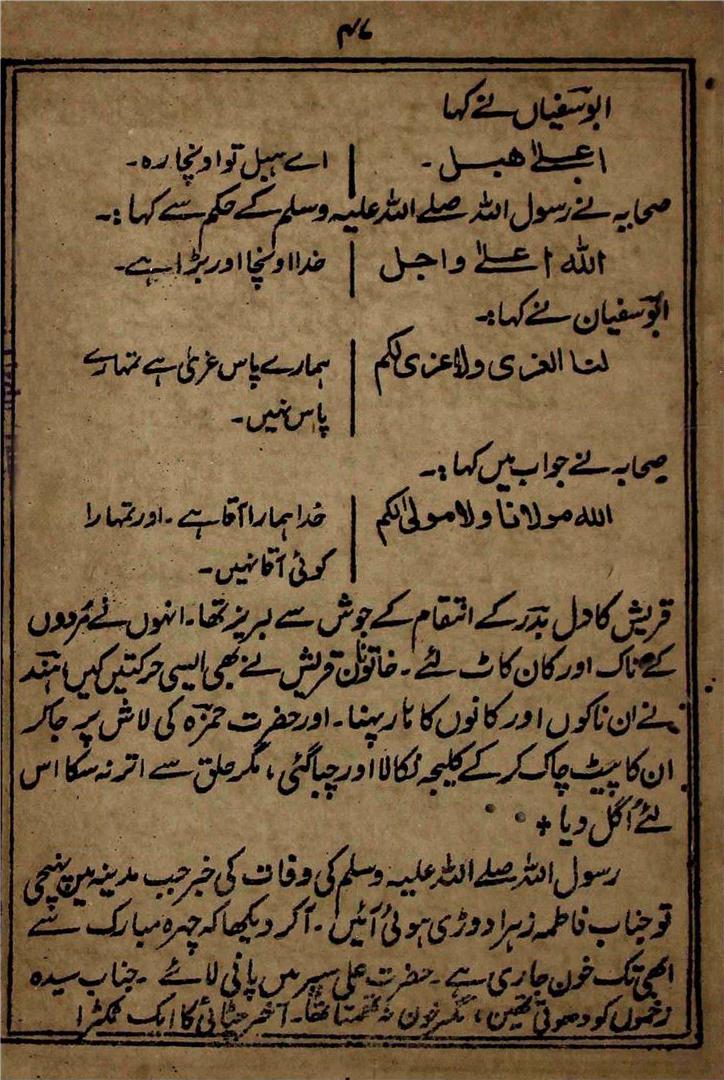 ۴۷
ابو سفیاں نے کہا
اعلےٰ هبل ۔ | اے ہبل تو اونچا رہ۔
صحابہ نے رسول اللہ صلے اللہ علیہ وسلم کے حکم سے کہا :۔
الله اعلےٰ واجل | خدا اونچا اور بڑا ہے۔
ابو سفیان نے کہا:۔
لنا العزی ولا عزی لکم | ہمارے پاس عزیٰ ہے تمہارے
پاس نہیں۔
صحابہ نے جواب میں کہا :۔
الله مولانا ولا مولیٰ لکم | خدا ہمارا آقا ہے ۔ اور تمہارا
کوئی آقا نہیں۔
قریش کا دل بدر کے انتقام کے جوش سے لبریز تھا۔ انہوں نے مُردوں
کے ناک اور کان کاٹ لئے ۔ خاتونان قریش نے بھی ایسی حرکتیں کیں ہند
نے ان ناکوں اور کانوں کا ہار پہنا ۔ اور حضرت حمزہ کی لاش پر جا کر
ان کا پیٹ چاک کر کے کلیجہ نکالا اور چبا گئی ، مگر حلق سے اتر نہ سکا اس
لئے اُگل دیا +
رسول اللہ صلے اللہ علیہ وسلم کی وفات کی خبر جب مدینہ میں پہنچی
تو جناب فاطمہ زہرا دوڑی ہوئی آئیں ۔ آکر دیکھا کہ چہرہ مبارک سے
ابھی تک خون جاری ہے ۔ حضرت علی سپر میں پانی لائے ۔ جناب سیدہ
زخموں کو دھوتی تھیں ، مگر خون نہ تھمتا تھا ۔ آخر چٹائی کا ایک ٹکڑا